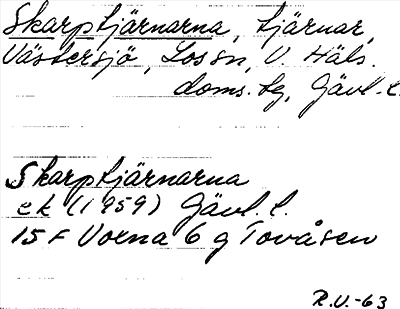 Skarptjärnarna, tjärnar,
Västersjö, Lossn, V. Häls.
doms. sg, Gävl. l.
Skarptjärnarna
ek (1959) Gävl. l.
15 F Vorna 6 g Tovåsen
R.V.-63